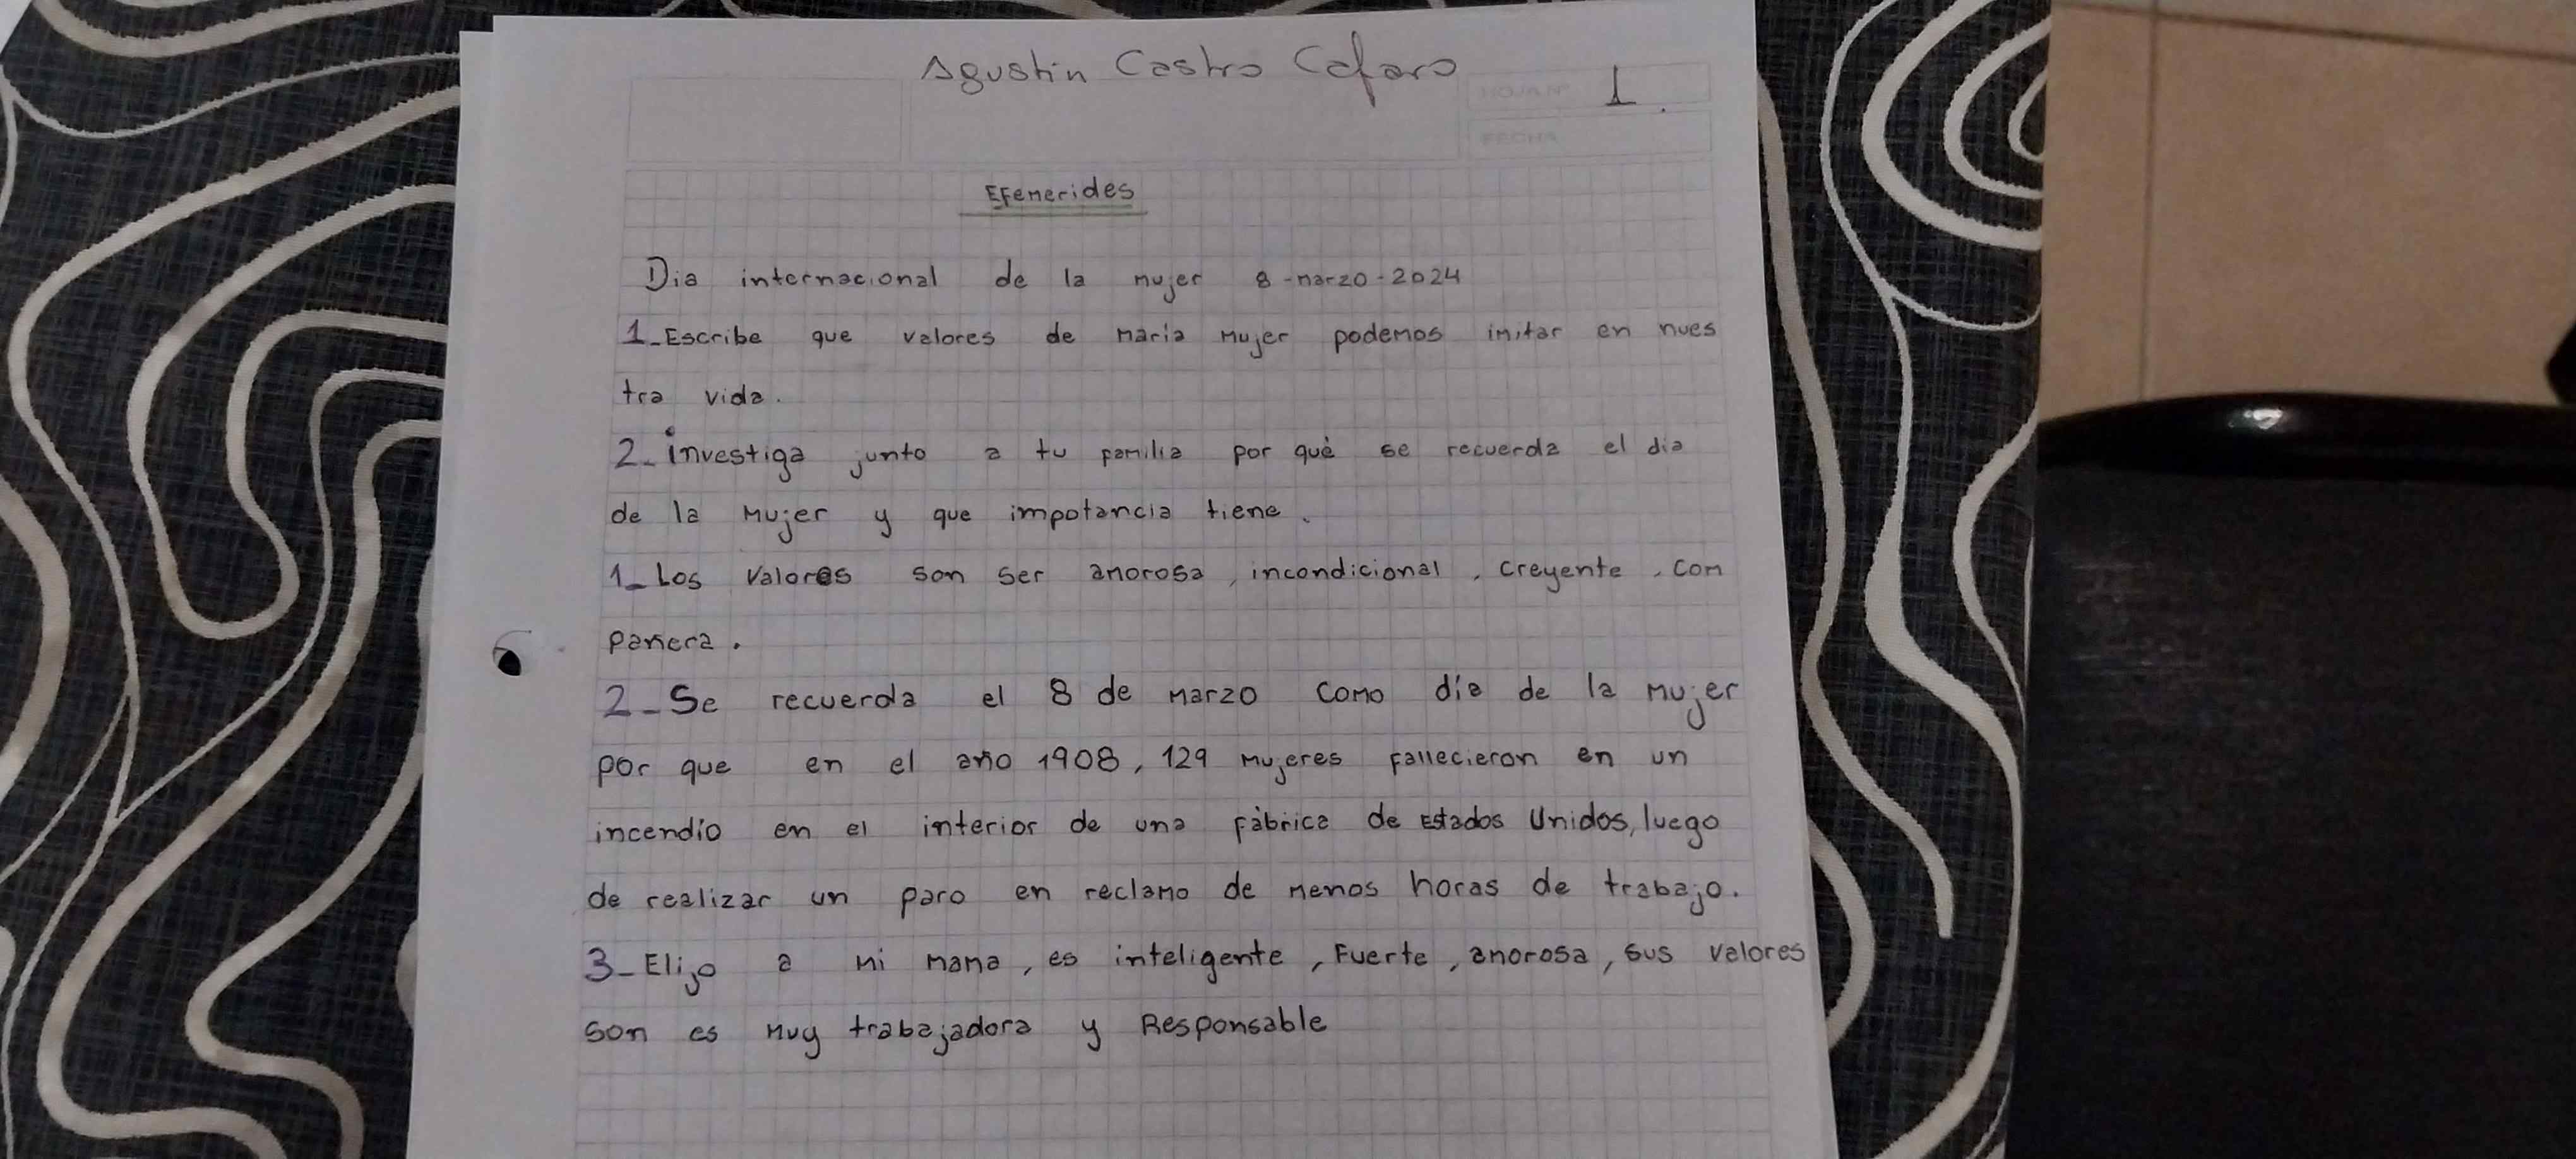 Agustin Castro Cafaro
HOJA Nº 1
FECHA
Efemerides
Dia internacional de la mujer 8-marzo-2024
1_Escribe que valores de maria mujer podemos imitar en nues
tra vida.
2_investiga junto a tu familia por què se recuerda el dia
de la mujer y que impotancia tiene.
1_Los Valores son ser amorosa, incondicional, creyente, com
pañera.
2_Se recuerda el 8 de marzo como día de la mujer
por que en el año 1908, 129 mujeres fallecieron en un
incendio en el interior de una fàbrica de Estados Unidos, luego
de realizar un paro en reclamo de menos horas de trabajo.
3_Elijo a mi mama, es inteligente, Fuerte, amorosa, sus valores
son es muy trabajadora y Responsable